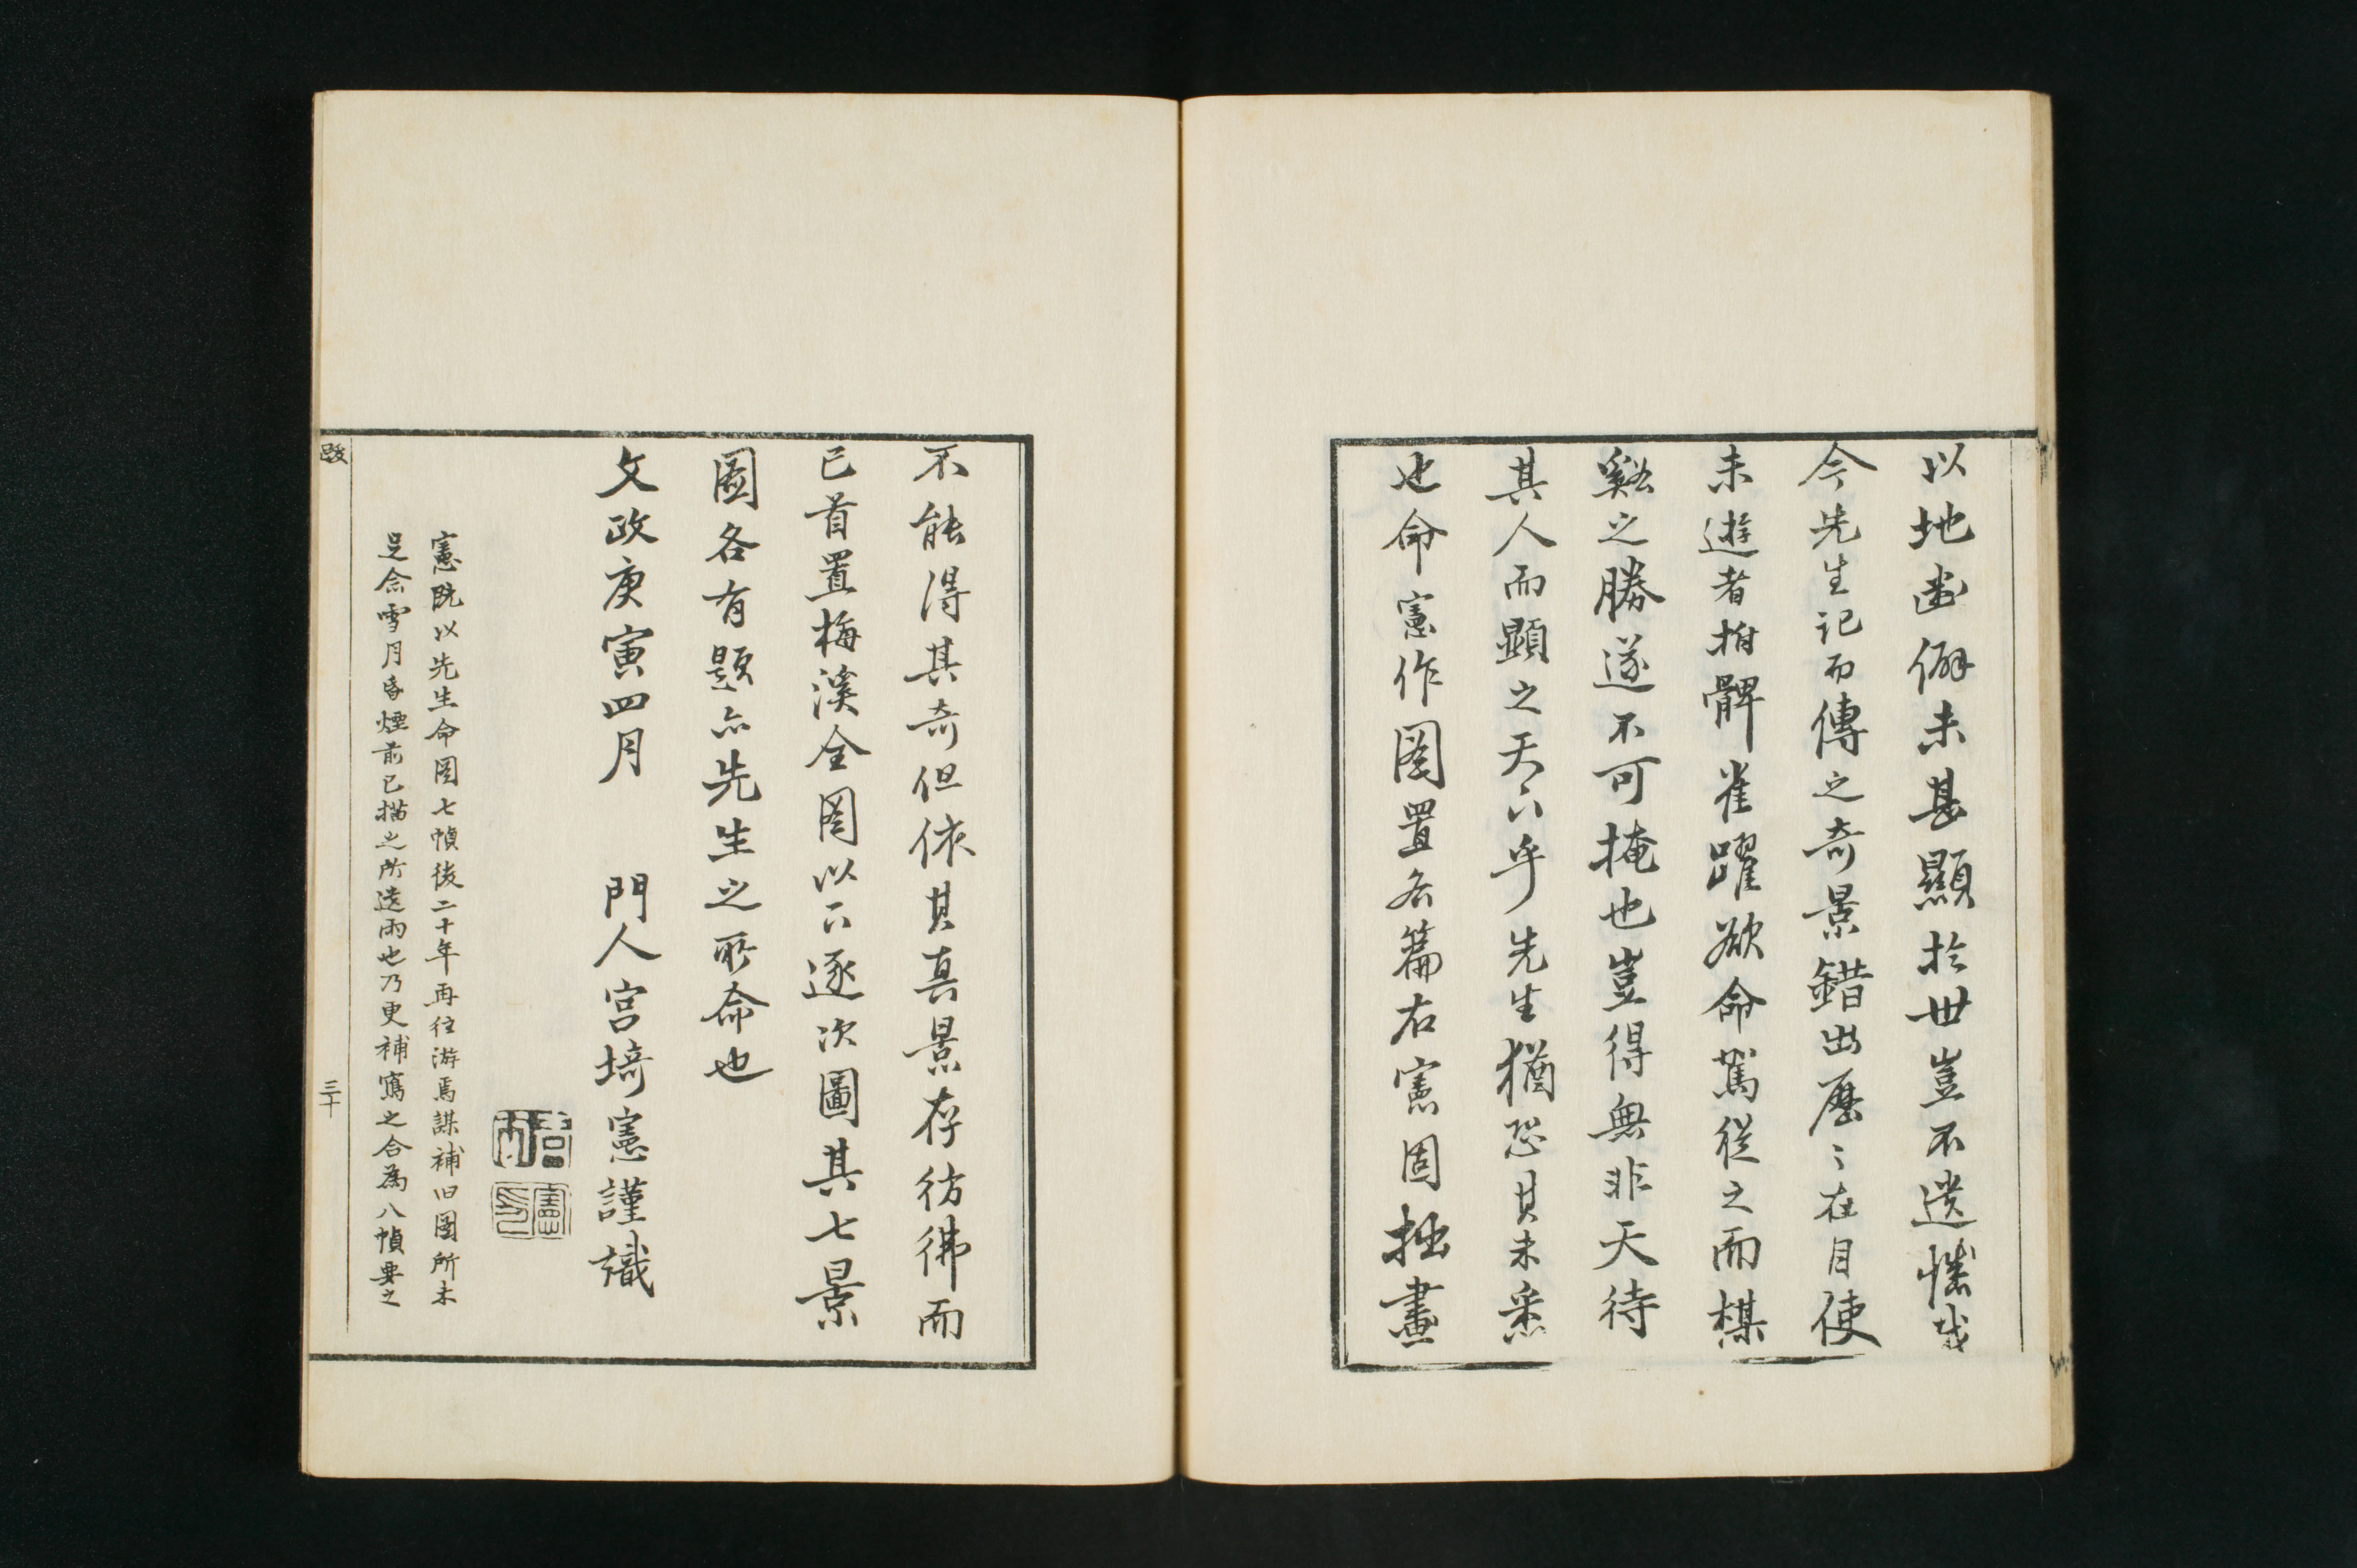 以地幽僻未甚顯於世豈不遺憾哉
今先生記而傳之奇景錯出歷〻在目使
未遊者拊髀雀躍欲命駕從之而楳
谿之勝遂不可掩也豈得無非天待
其人而顯之天下乎先生猶恐其未悉
也命憲作圖置各篇右憲固拙畫
不能得其奇但依其真景存彷彿而
已首置梅溪全圖以下逐次圖其七景
圖各有題亦先生之所命也
文政庚寅四月 門人宮埼憲謹識
憲既以先生命圖七幀後二十年再往游焉謀補旧圖所未
足念雪月昏煙前已描之所遺雨也乃更補寫之合為八幀要之
跋
三十